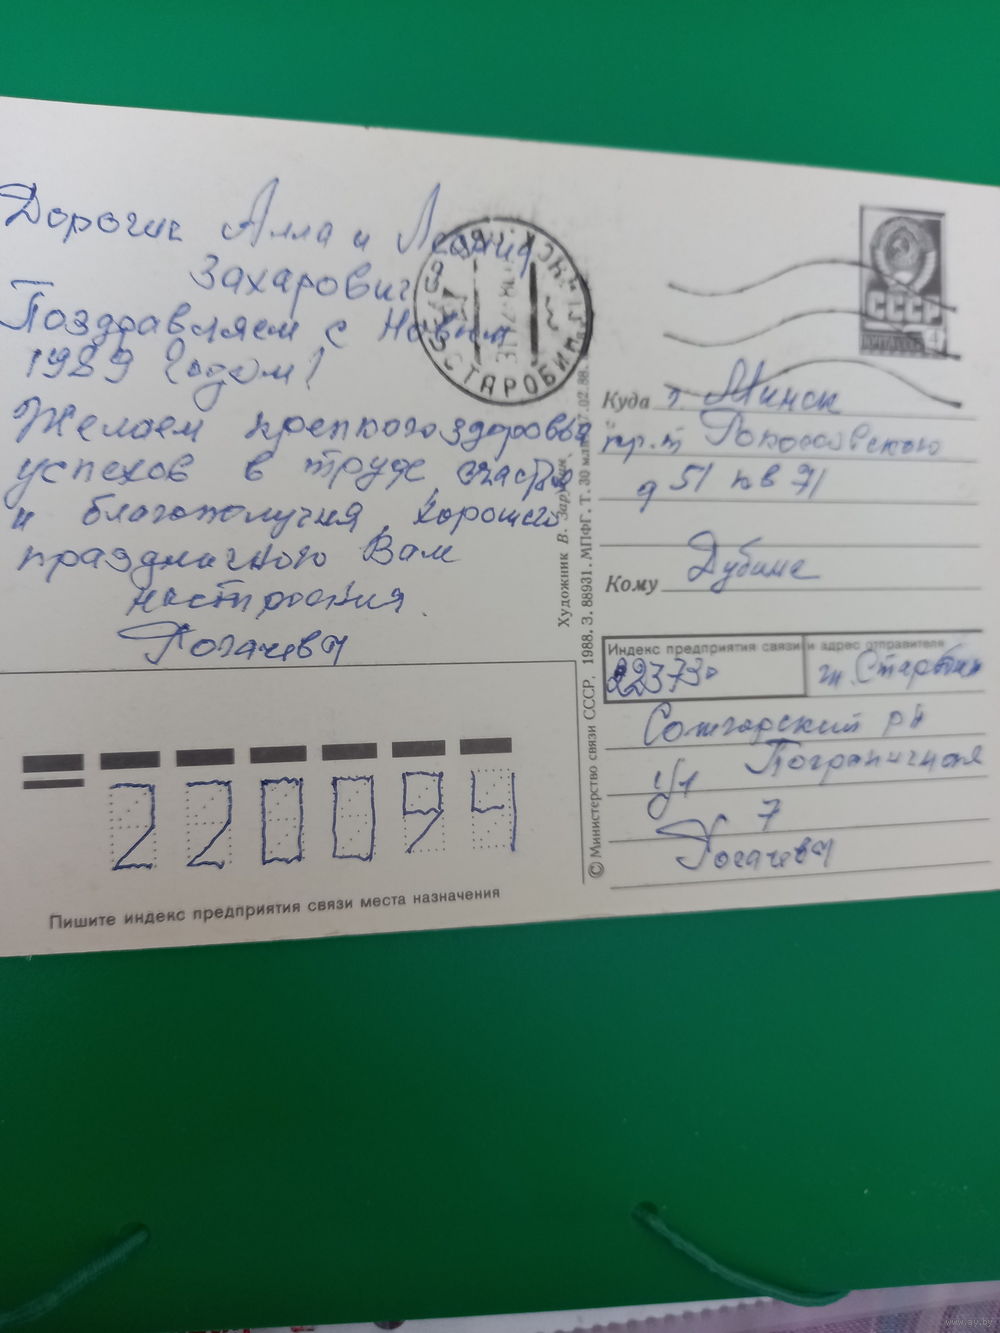 Дорогие Алла и Леонид
Захарович
Поздравляем с Новым
1989 Годом!
Желаем крепкого здоровья
успехов в труде, счастья
и благополучия, хорошего
праздничного Вам
настроения.
Рогачевы
СТАРОБИН
СССР
Куда г. Минск
пр.т Рокоссовского
д 51 кв 71
Кому Дубине
Индекс предприятия связи и адрес отправителя
223730 гп. Старобин
Солигорский рн
ул Пограничная
7
Рогачевы
Художник В. Зарубин
© Министерство связи СССР, 1988. З. 88931. МПФГ. Т. 30 млн. 7.02.88.
220094
Пишите индекс предприятия связи места назначения
www.ay.by